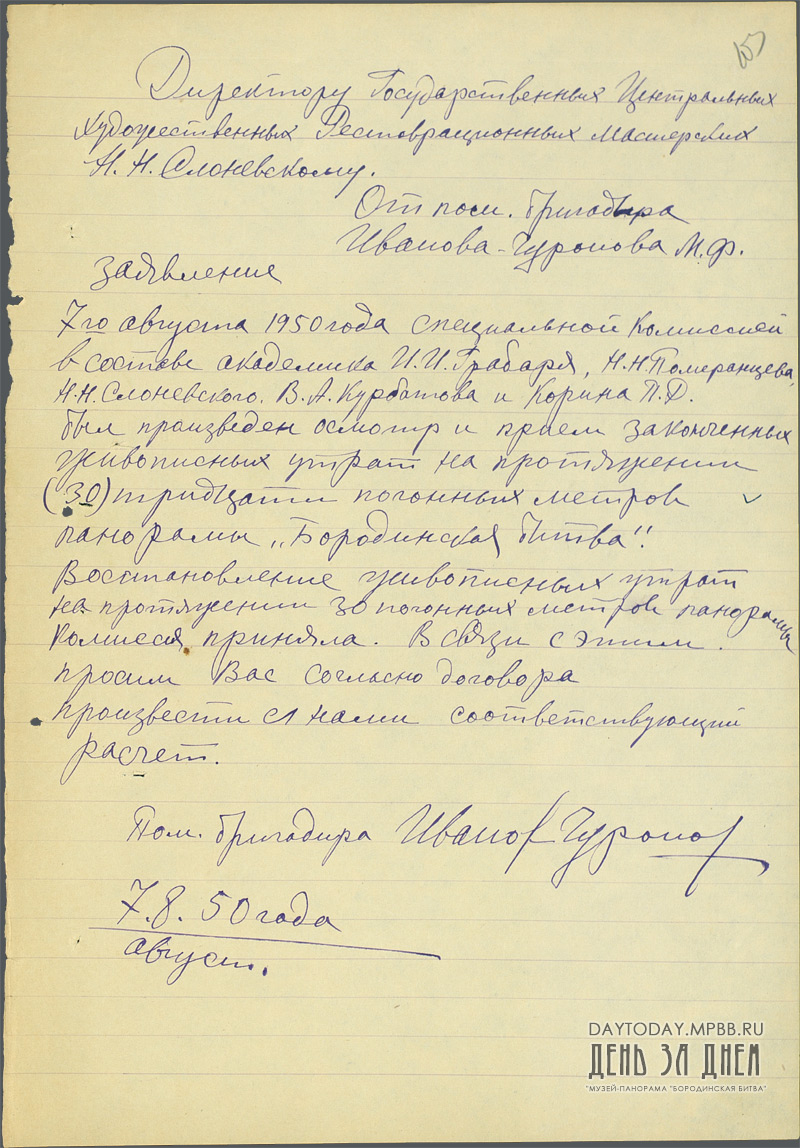 Директору Государственных Центральных
Художественных Реставрационных мастерских
Н. Н. Слоневскому.
От пом. бригадира
Иванова-Чуронова М.Ф.
Заявление
7го августа 1950 года специальной Комиссией
в составе академика И.И. Грабаря, Н.Н. Померанцева,
Н.Н. Слоневского. В.А. Курбатова и Корина П.Д.
был произведен осмотр и прием законченных
живописных утрат на протяжении
(30) тридцати погонных метров
панорамы „Бородинская битва".
Восстановление живописных утрат
на протяжении 30 погонных метров панорамы
комиссия приняла. В связи с этим
просим Вас согласно договора
произвести с нами соответствующий
расчет.
Пом. бригадира Иванов Чуронов
7.8.50 года
август.
DAYTODAY.MPBB.RU
ДЕНЬ ЗА ДНЕМ
"МУЗЕЙ-ПАНОРАМА "БОРОДИНСКАЯ БИТВА"